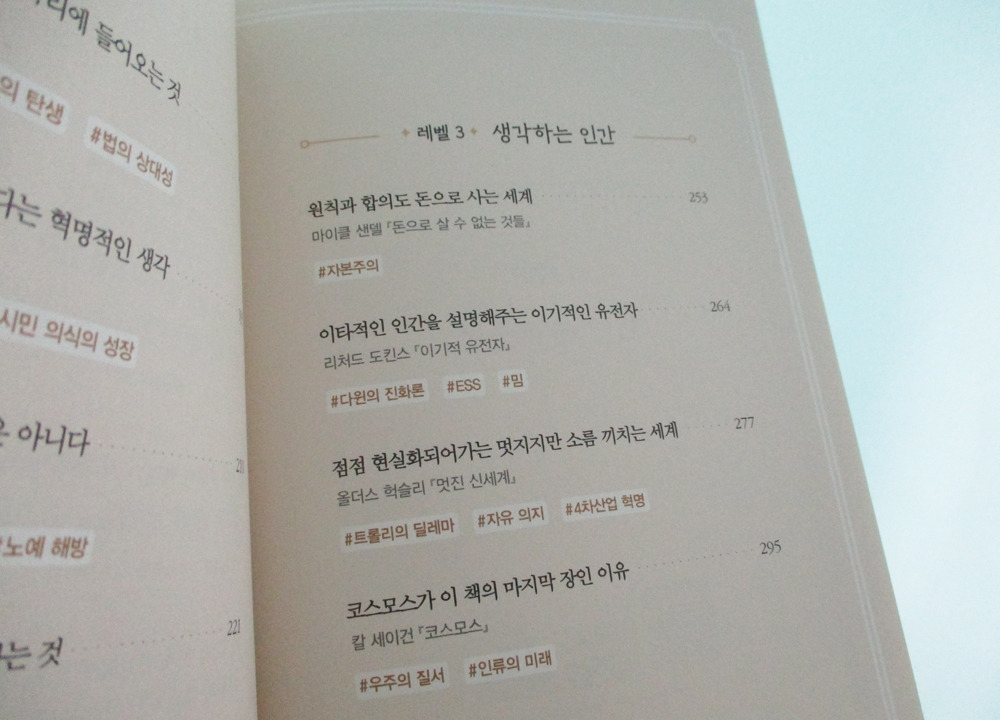 들어오는 것
의 탄생 #법의 상대성
다는 혁명적인 생각
시민 의식의 성장
아니다
#노예 해방
221
는 것
레벨 3 생각하는 인간
원칙과 합의도 돈으로 사는 세계 253
마이클 샌델 『돈으로 살 수 없는 것들』
#자본주의
이타적인 인간을 설명해주는 이기적인 유전자 264
리처드 도킨스 『이기적 유전자』
#다윈의 진화론 #ESS #밈
점점 현실화되어가는 멋지지만 소름 끼치는 세계 277
올더스 헉슬리 『멋진 신세계』
#트롤리의 딜레마 #자유 의지 #4차산업 혁명
코스모스가 이 책의 마지막 장인 이유 295
칼 세이건 『코스모스』
#우주의 질서 #인류의 미래